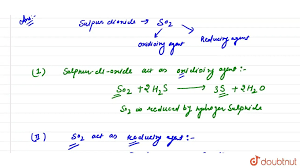 Ans:- Sulphur dioxide → SO₂
oxidising agent Reducing agent
(I) Sulphur di-oxide act as oxidising agent :-
SO₂ + 2H₂S → 3S + 2H₂O
SO₂ is reduced by hydrogen sulphide
(II) SO₂ act as reducing agent :-
doubtnut